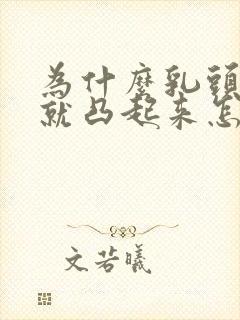 為什麼乳頭
就凸起來怎
文若曦